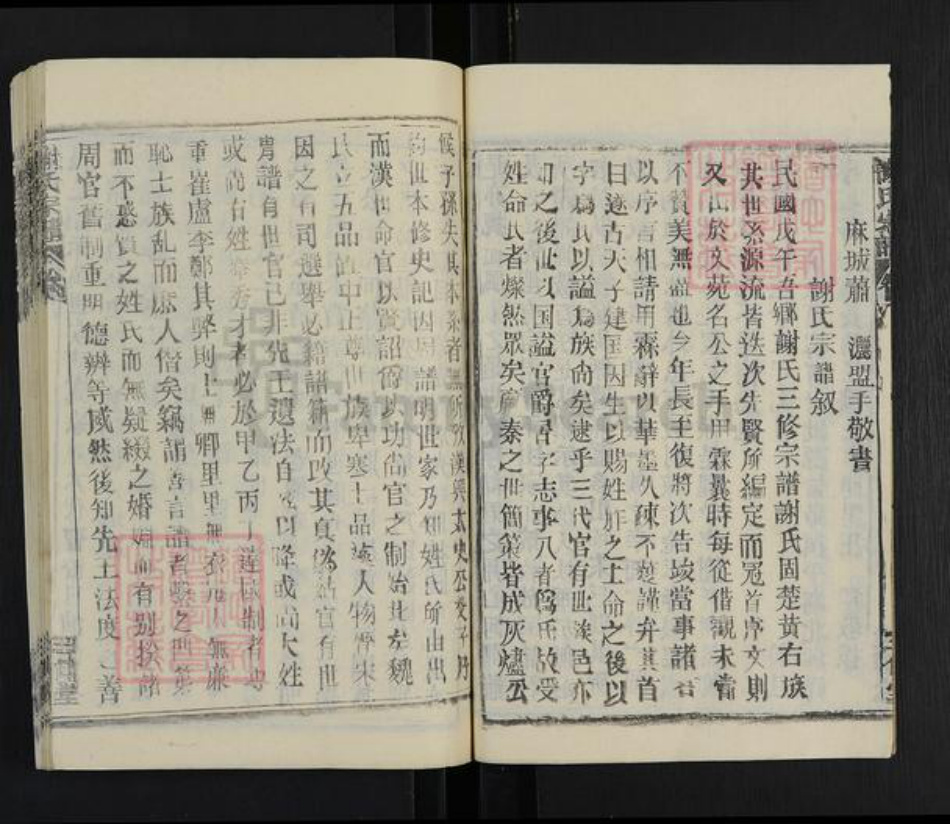 麻城蕭 灑盟手敬書
謝氏宗譜叙
民國戊午吾鄉謝氏三修宗譜謝氏固楚黄右族
其世系源流皆迭次先賢所編定而冠首序文則
又出於文苑名公之手用霖曩時每從借觀未嘗
不贊美無 也今年長至復將次告竣當事諸君
以序言相請用霖辭以華墨久疎不獲謹弁其首
曰遂古天子建国因生以賜姓胙之土命之後以
字為氏以謚為族尚矣逮乎三代官有世 邑亦
如之後世以国謚官爵 字志事八者為氏故受
姓命氏者燦然眾矣 秦之世簡策皆成灰燼公
候子孫失其本系者無所攷漢興太史公 子
約世本修史記因周譜明世家乃知姓氏所由出
而漢世命官以賢詔爵以功尚官之制始此矣魏
氏立五品 中正尊世族卑寒士品藻人物 宋
因之有司選舉必稽譜籍而攷其真偽故官有世
胄譜有世官已非先王遺法自 以降或尚大姓
或尚右姓舉秀才者必於甲乙丙丁 制者
重崔盧李鄭其弊則上無鄉里里無衣 人無廉
恥士族乱而庶人僭矣竊謂善言譜者 之
而不惑質之姓氏而無疑綴之婚姻而有别按
周官舊制重明德辨等威然後知先王法度 善
謝氏宗譜